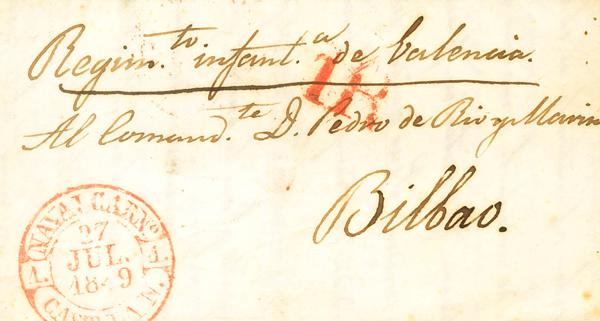 Regim.to infant.a de Valencia.
Al Comand.te D. Pedro de Rio y Marin
Bilbao.
NAVALCARNO
27
JUL.
1849
CAST.LA N.